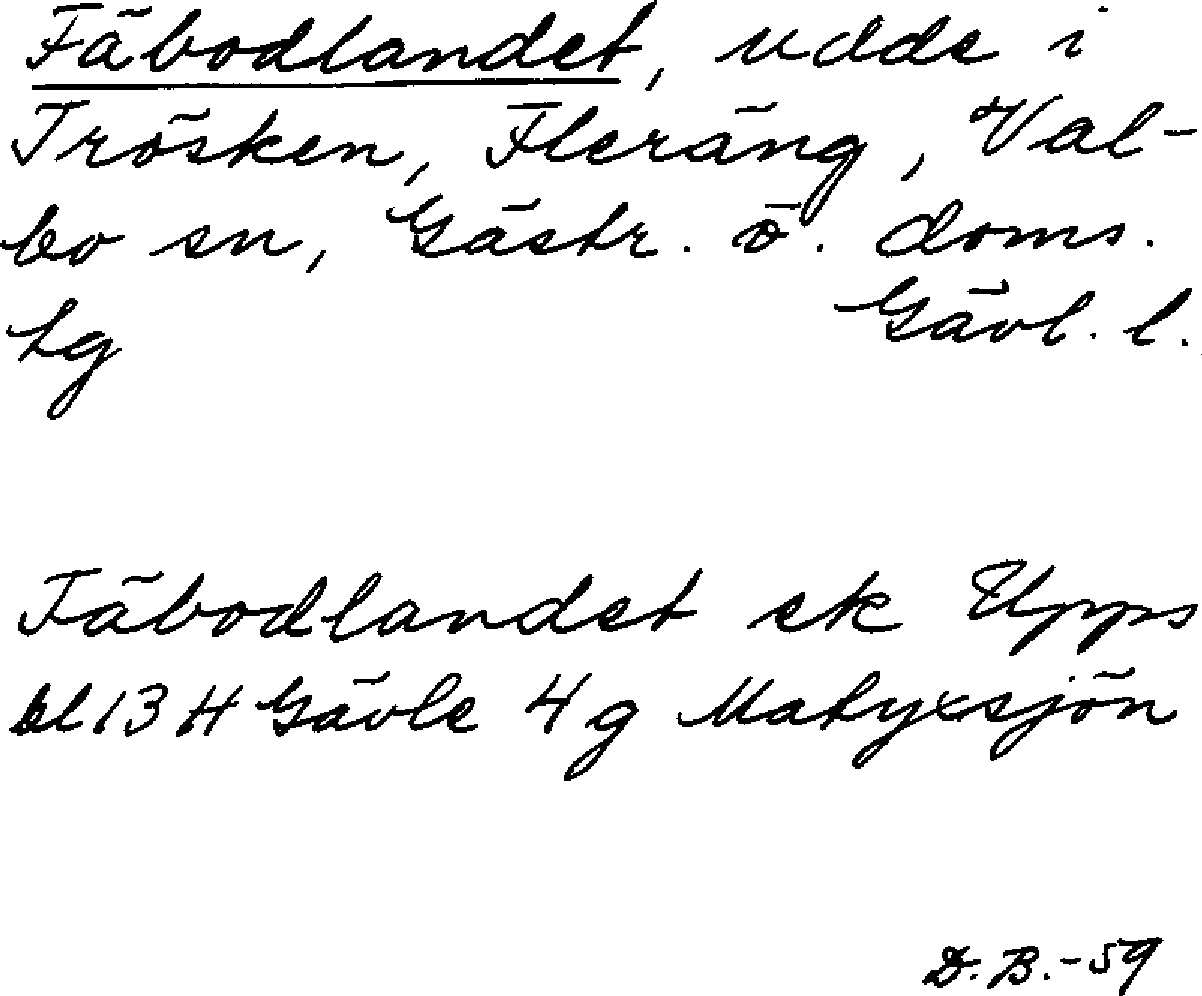 Fäbodlandet, udde i
Trösken, Fleräng, Val-
bo sn, Gästr. ö. doms.
hg Gävl. l.
Fäbodlandet ek Upps
bl 13 H Gävle 4 g Matyxsjön
D.B.-59